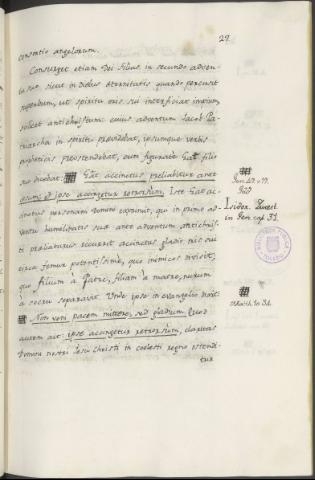 29
consortio angelorum.
Consurget etiam Dei filius in secundo adven-
tu suo sicut in diebus aeternitatis quando percussit
superbum, ut spiritu oris sui interficiat impium,
scilicet antichristum cuius adventum Jacob Pa-
triarcha in spiritu praevidebat, ipsumque verbis
propheticis praeostendebat, cum figurate Gat filio
suo dicebat: Gat accinctus praeliabitur ante
eum, et ipse accingetur retrorsum. Iste Gat ac-
cinctus personam Domini exprimit, qui in primo ad-
ventu humilitatis suae ante adventum antichris-
ti praeliaturus occurrit accinctus gladio suo
circa femur potentissime, quo inimicos divisit,
quo filium a Patre, filiam a matre, nurum
a socru separavit. Unde ipse in evangelio inquit:
Non veni pacem mittere, sed gladium. Quod
autem ait: ipse accingetur retrorsum, claritas
Domini nostri Jesu Christi in coelesti regno ostendi-
tur
Gen. 49. v. 19.
Isidor. Quest.
in Gen cap. 31.
Math. 10. 34.